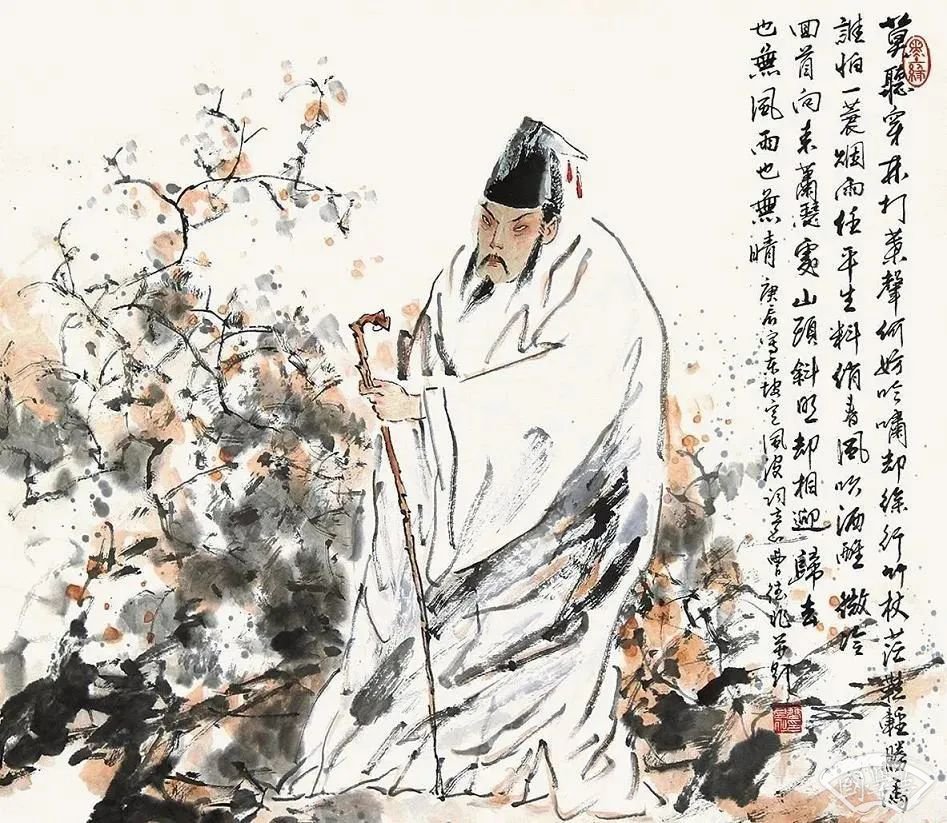 莫聽穿林打葉聲何妨吟嘯却徐行竹杖芒鞋輕勝馬
誰怕一蓑烟雨任平生料峭春風吹酒醒微冷
回首向来蕭瑟處山頭斜照却相迎歸去
也無風雨也無晴 庚辰寫东坡定風波詞意曹德兆并題
墨緣